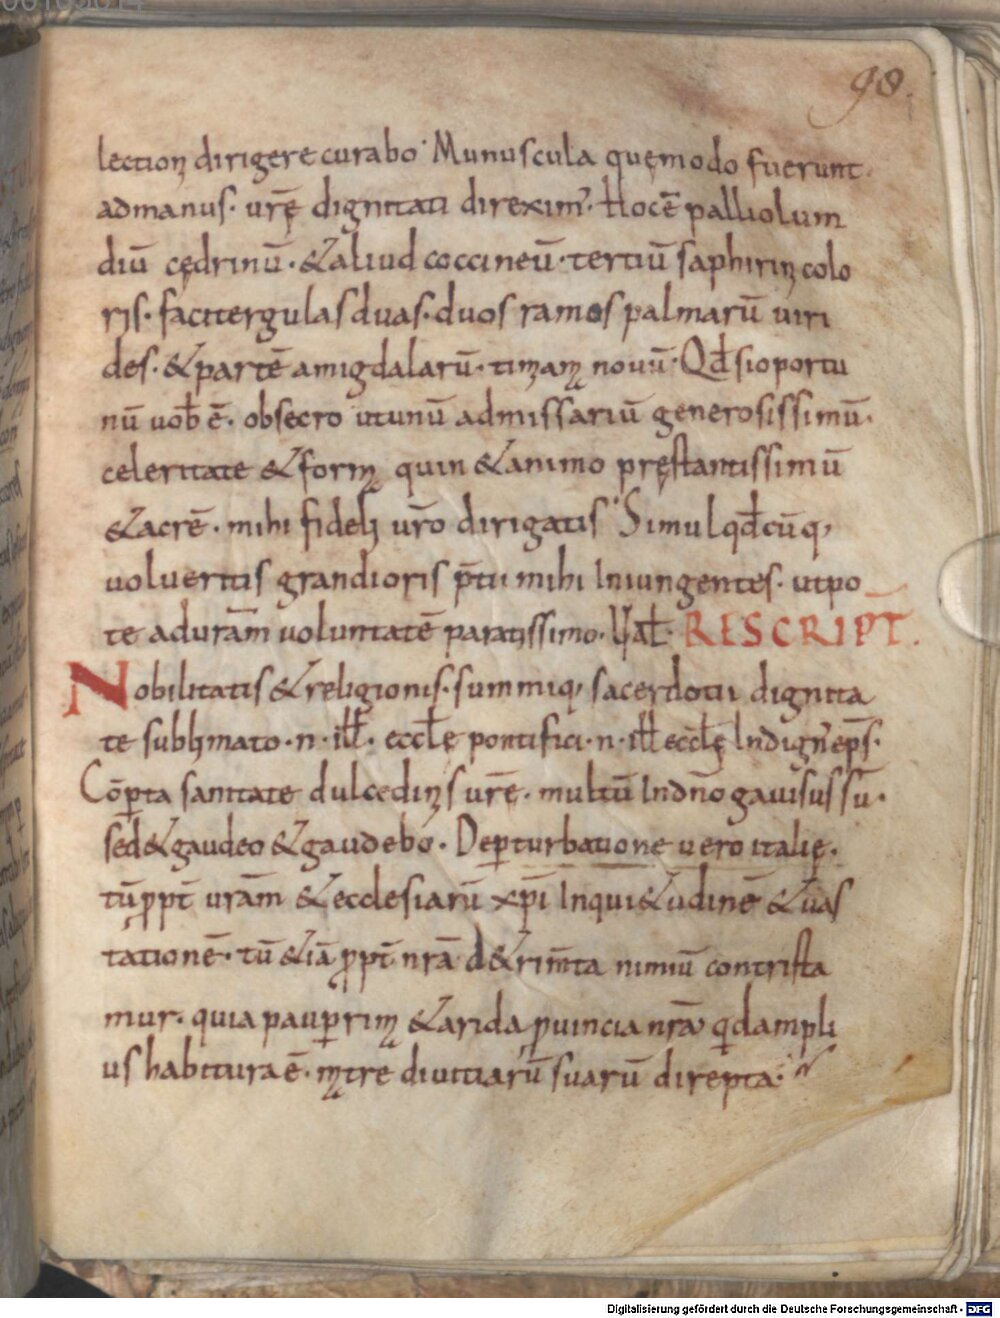 98
lectioni dirigere curabo. Munuscula quęmodo fuerunt.
admanus. urē dignitati direxim᾽. Hocē palliolum
diū cędrinū. &aliud coccineū. tertiū saphirini colo
ris. facitergulas duas. duos ramos palmarū uiri
des. &partē amigdalarū. timami nouū. Qđ sioportu
nū uob̄ ē. obsecro utunū admissariū generosissimū.
celeritate &formę quin &animo pręstantissimū
&acrē. mihi fideli ur̄o dirigatis. Simul qđcūq;
uolueritis grandioris p̄tii mihi Iniungentes. utpo
te adurām uoluntatē paratissimo. Ual̄. RESCRIPT̄.
Nobilitatis &religionis. summiq; sacerdotii dignita
te sublimato. n. ill̄. eccl̄ę pontifici. n. ill̄ eccl̄ę Indign᾽ ep̄s.
Cōꝑta sanitate dulcedinis urē. multū Indn̄o gauisus sū.
sed&gaudeo &gaudebo. Deꝑturbatione uero italię.
tū ꝓpt̄ urām &ecclesiarū xp̄i Inqui&udinē &uas
tationē. tū &iā ꝓpt̄ nrā d&rim̄ta nimiū contrista
mur. quia pauꝑrimę &arida ꝓuincia nrā qđ ampli
us habitura ē. mītre diuitiarū suarū direpta.
Digitalisierung gefördert durch die Deutsche Forschungsgemeinschaft - DFG